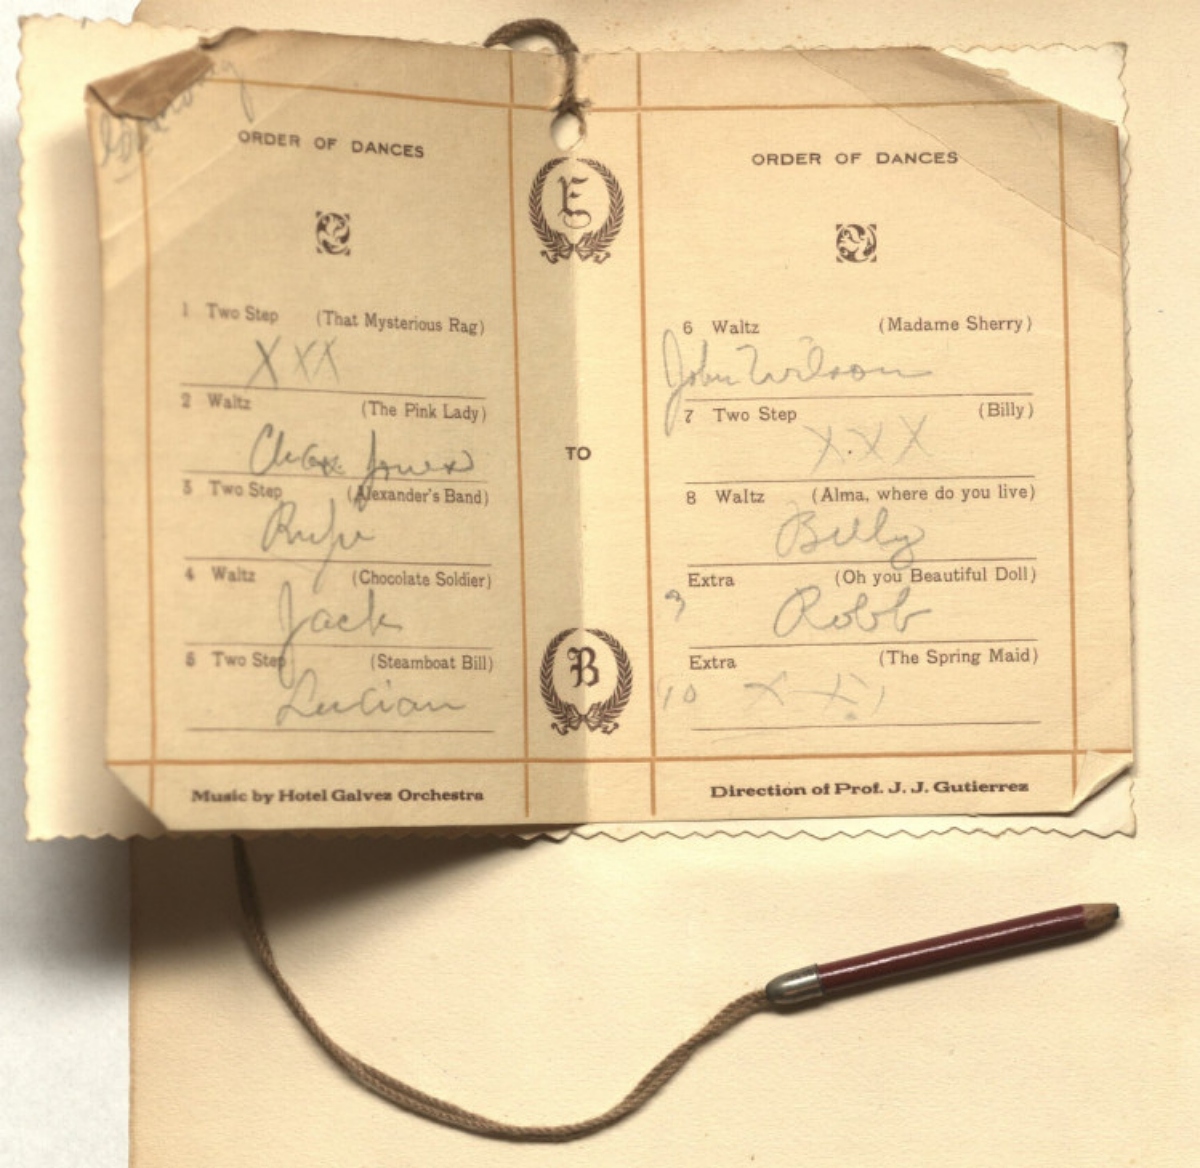 ORDER OF DANCES
1 Two Step (That Mysterious Rag)
XXX
2 Waltz (The Pink Lady)
Chas. Jones
3 Two Step (Alexander's Band)
Rufe
4 Waltz (Chocolate Soldier)
Jack
5 Two Step (Steamboat Bill)
Lucian
Music by Hotel Galvez Orchestra
E
TO
B
ORDER OF DANCES
6 Waltz (Madame Sherry)
John Wilson
7 Two Step (Billy)
XXX
8 Waltz (Alma, where do you live)
Billy
Extra (Oh you Beautiful Doll)
9 Robb
Extra (The Spring Maid)
10 X X
Direction of Prof. J. J. Gutierrez